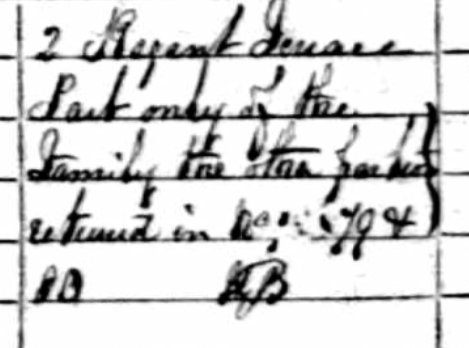 2 Regent Terrace
Part only of the
Family the other portion
returned in No. 79 &